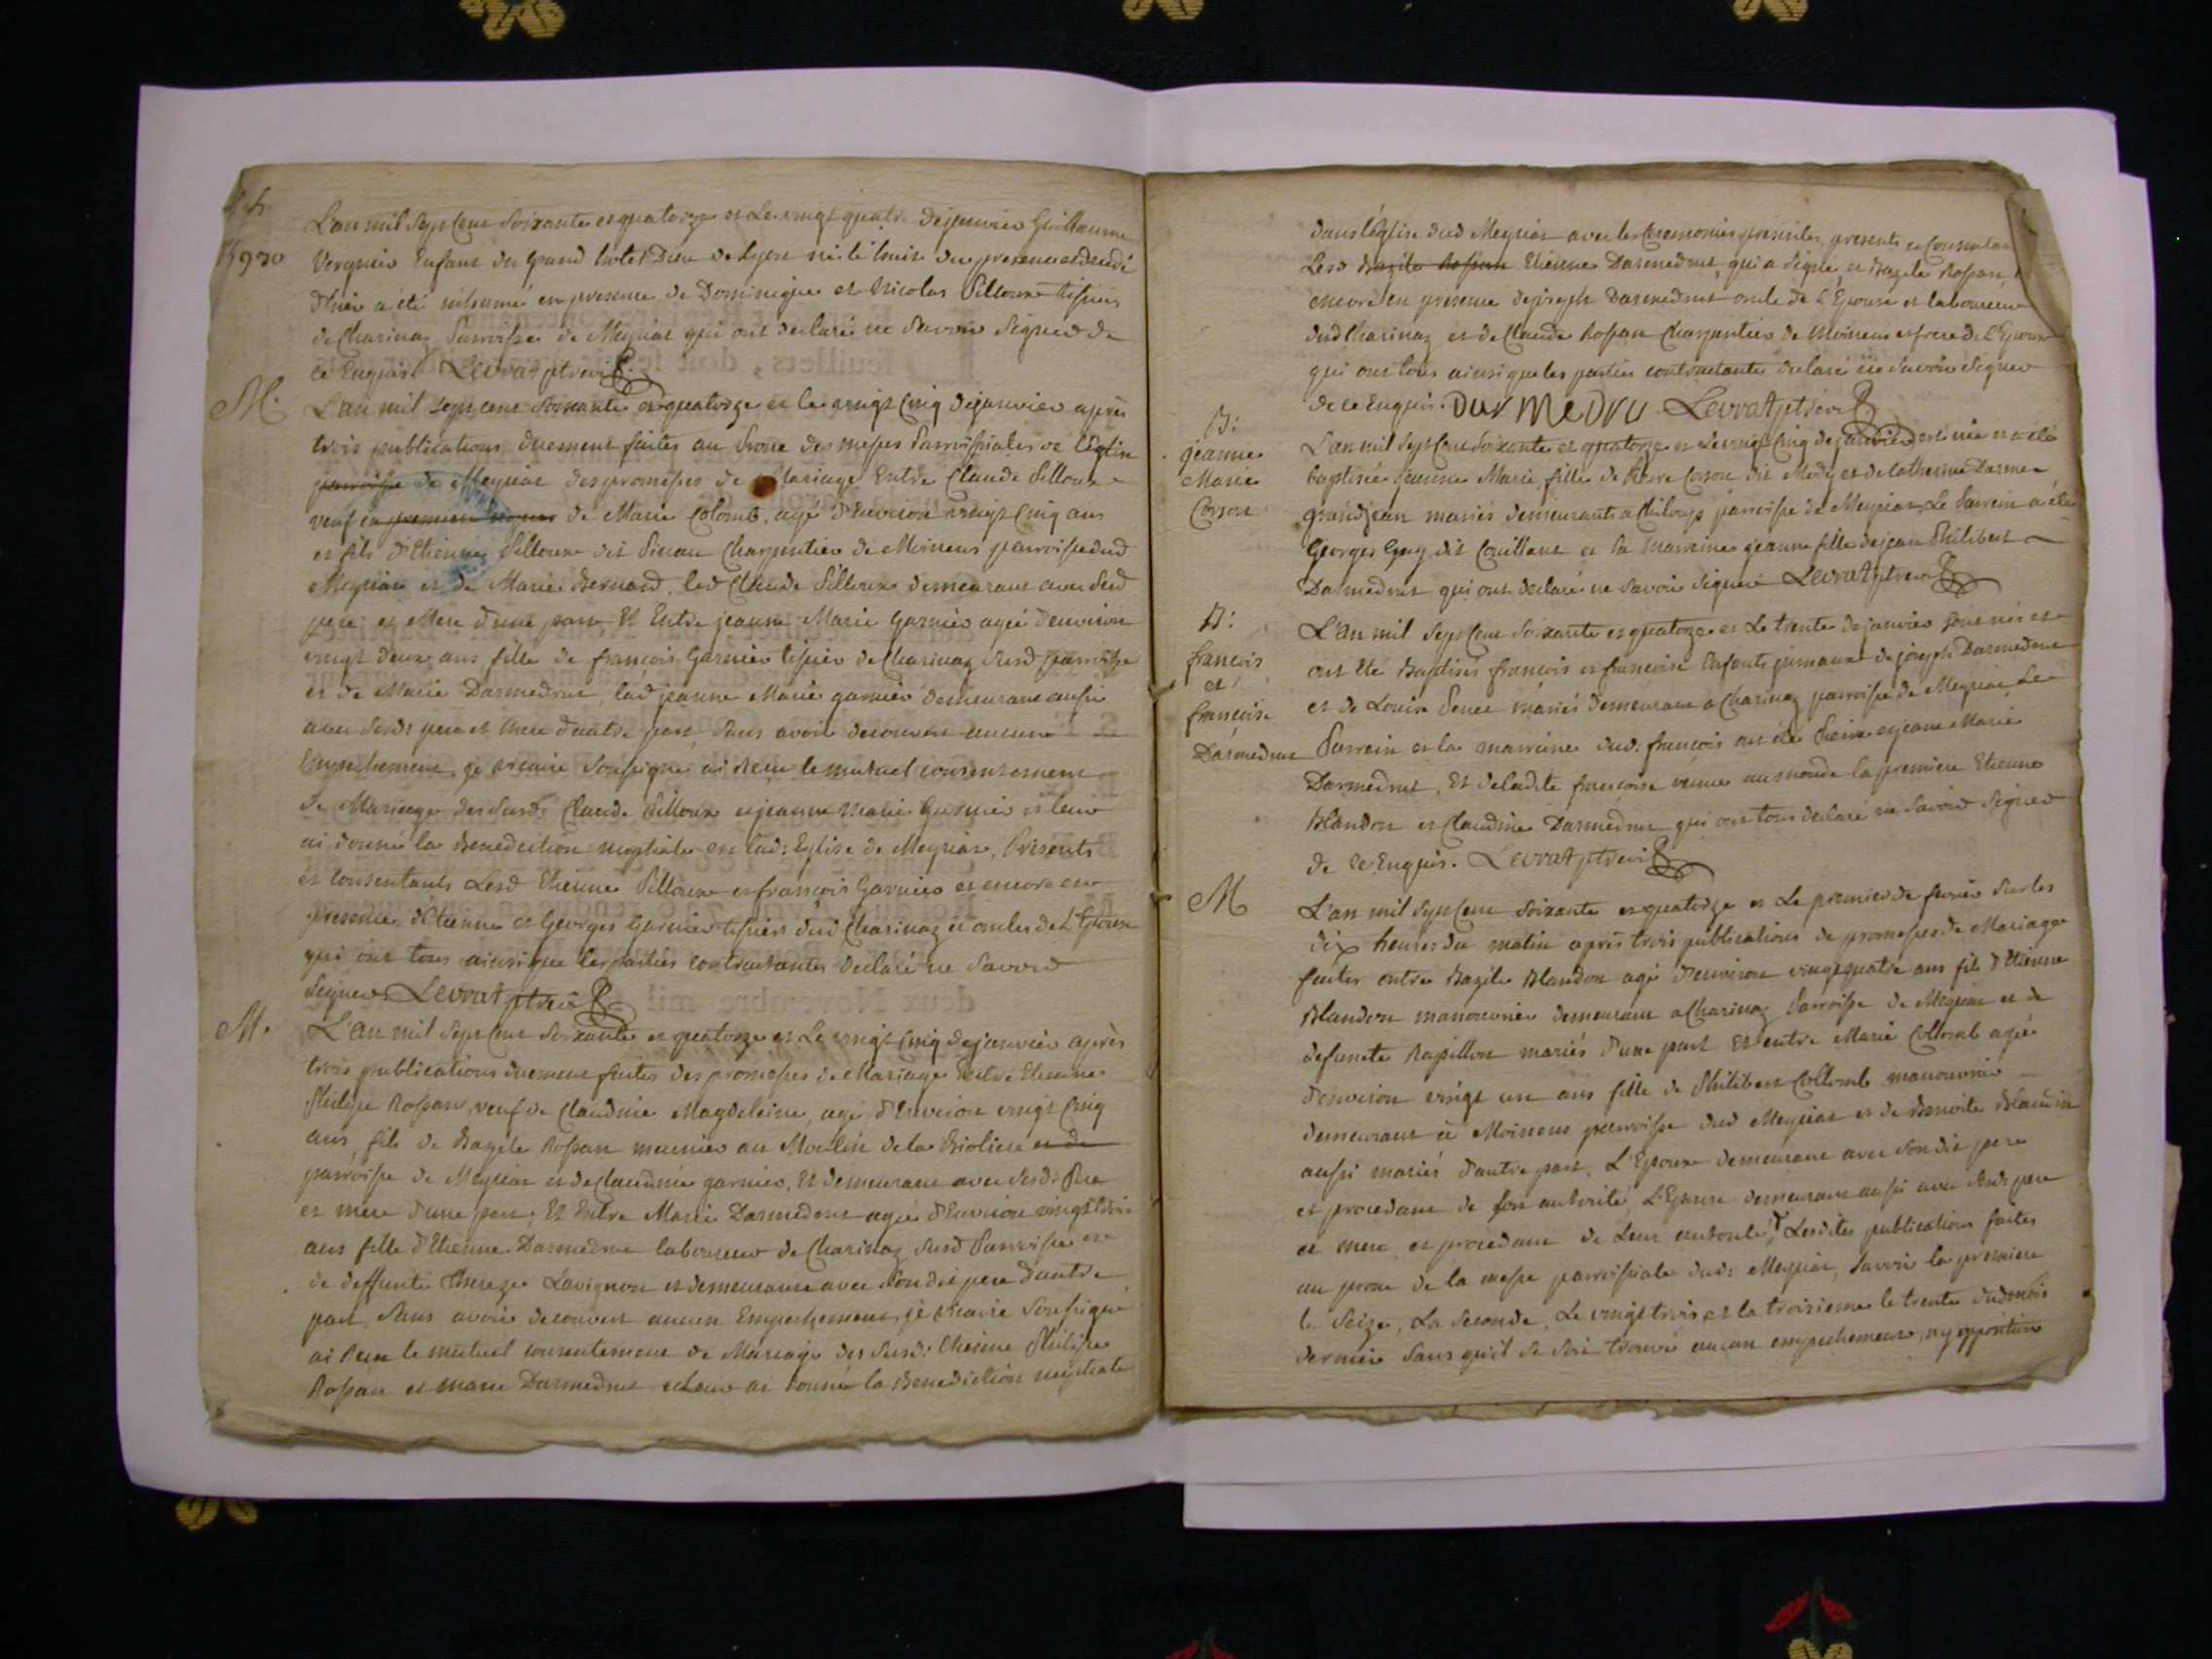 15930
L'an mil Sept Cent Soixante et quatorze et Le vingt quatre de janvier Guillaume
Verguier Enfant du grand hotel Dieu de Lyon
d'hier a été inhumé en presence de Dominique et Nicolas Pilloux tissiers
de Charinaz Parroisse de Meyriat qui ont declaré ne Savoir Signer de
ce Enquis. Levrat ptre vic
M.
L'an mil Sept cent Soixante et quatorze et le vingt Cinq de janvier après
trois publications duement faites au Prone des messes Parroissiales de l'Eglise
parroisse de Meyriat des promesses de Mariage Entre Claude Pilloux
veuf en de Marie Colomb, agé d'Environ vingt Cinq ans
et fils d'Etienne Pilloux dit Charpentier de Moinens parroisse dud
Meyriat et de Marie Bernard, led Claude Pilloux demeurant avec Sesd
pere et Mere d'une part, Et Entre jeanne Marie Garnier agée d'environ
vingt deux ans fille de françois Garnier tissier de Charinaz Susd parroisse
et de Marie Darmedrut, lad jeanne Marie garnier demeurant aussi
avec Sesd: pere et Mere d'autre part, Sans avoir decouvert aucun
Empechement, je vicaire Soussigné ai Recu le mutuel consentement
de Mariage des Susd: Claude Pilloux et jeanne Marie Garnier et leur
ai donné la Benediction nuptiale en lad: Eglise de Meyriat, Présents
et Consentants Lesd Etienne Pilloux et françois Garnier et encore en
presence d'Etienne et Georges Garnier tissiers dud Charinaz et oncles de L'Epouse
qui ont tous ainsi que les parties contractantes declaré ne Savoir
Signer. Levrat ptre vic
M.
L'an mil Sept Cent Soixante et quatorze et Le vingt Cinq de janvier après
trois publications duement faites des promesses de Mariage Entre Etienne
Philipe Rossan, veuf de Claudine Magdeleine, agé d'Environ vingt Cinq
ans, fils de Bazile Rossan meunier au Moulin de la Bioliere et de
parroisse de Meyriat et de Claudine garnier, Et demeurant avec Sesd: Pere
et mere d'une part; Et Entre Marie Darmedrut agée d'Environ vingt trois
ans fille d'Etienne Darmedrut laboureur de Charinaz Susd Parroisse et
de deffunte Thereze Lavignon et demeurant avec Son dit pere d'autre
part, Sans avoir decouvert aucun Empechement, je vicaire Soussigné
ai Recu le mutuel consentement de Mariage des Susd: Etienne Philipe
Rossan et Marie Darmedrut et Leur ai donné la Benediction nuptiale
dans l'Eglise dud Meyriat avec les Ceremonies presents et Consentant
Lesd Bazile Rossan Etienne Darmedrut, qui a Signé, et Bazile Rossan,
encore en presence de joseph Darmedrut oncle de l'Epouse et laboureur
dud Charinaz et de Claude Rossan Charpentier de Moinens et frere de l'Epoux
qui ont tous ainsi que les parties contractantes declaré ne Savoir Signer
de ce Enquis. DURMEDRU Levrat ptre vic
B:
jeanne
Marie
Corson
L'an mil Sept Cent Soixante et quatorze et Le vingt Cinq de janvier est née et a été
baptisée jeanne Marie, fille de Pierre Corson dit Mody et de Catherine Darme
grandjean mariés demeurants a Chiloup parroisse de Meyriat, Le Parrein a été
Georges Guy dit Couillant et la Marreine jeanne fille de jean Philibert
Darmedrut qui ont declaré ne Savoir Signer Levrat ptre vic
B:
francois
et
francoise
Darmedrut
L'an mil Sept Cent Soixante et quatorze et Le trente de janvier sont nés et
ont Eté Baptisés françois et francoise Enfants jumeaux de joseph Darmedrut
et de Louise Penet mariés demeurant a Charinaz parroisse de Meyriat, Le
Parrein et la marreine dud: françois ont été Pierre et jeanne Marie
Darmedrut, Et de ladite francoise venue au monde la premiere Etienne
Blandon et Claudine Darmedrut qui ont tous declaré ne Savoir Signer
de ce Enquis. Levrat ptre vic
M
L'an mil Sept Cent Soixante et quatorze et Le premier de fevrier Sur les
dix heures du matin après trois publications de promesses de Mariage
faites entre Bazile Blandon agé d'environ vingt quatre ans fils d'Etienne
Blandon manouvrier demeurant a Charinaz Parroisse de Meyriat et de
defuncte Rapillon mariés d'une part Et entre Marie Collomb agée
d'environ vingt un ans fille de Philibert Collomb manouvrier
demeurant à Moinens parroisse dud Meyriat et de Benoite Blandin
aussi mariés d'autre part, L'Epoux demeurant avec Son dit pere
et procedant de son autorité, L'Epouse demeurant aussi avec Sesd: pere
et mere et procedant de Leur autorité, Lesdites publications faites
au prone de la messe parroissiale dud: Meyriat, Savoir la premiere
le Seize, La Seconde, Le vingt trois et la troisieme le trente dud mois
dernier Sans qu'il Se Soit trouvé aucun empechement, ny opposition